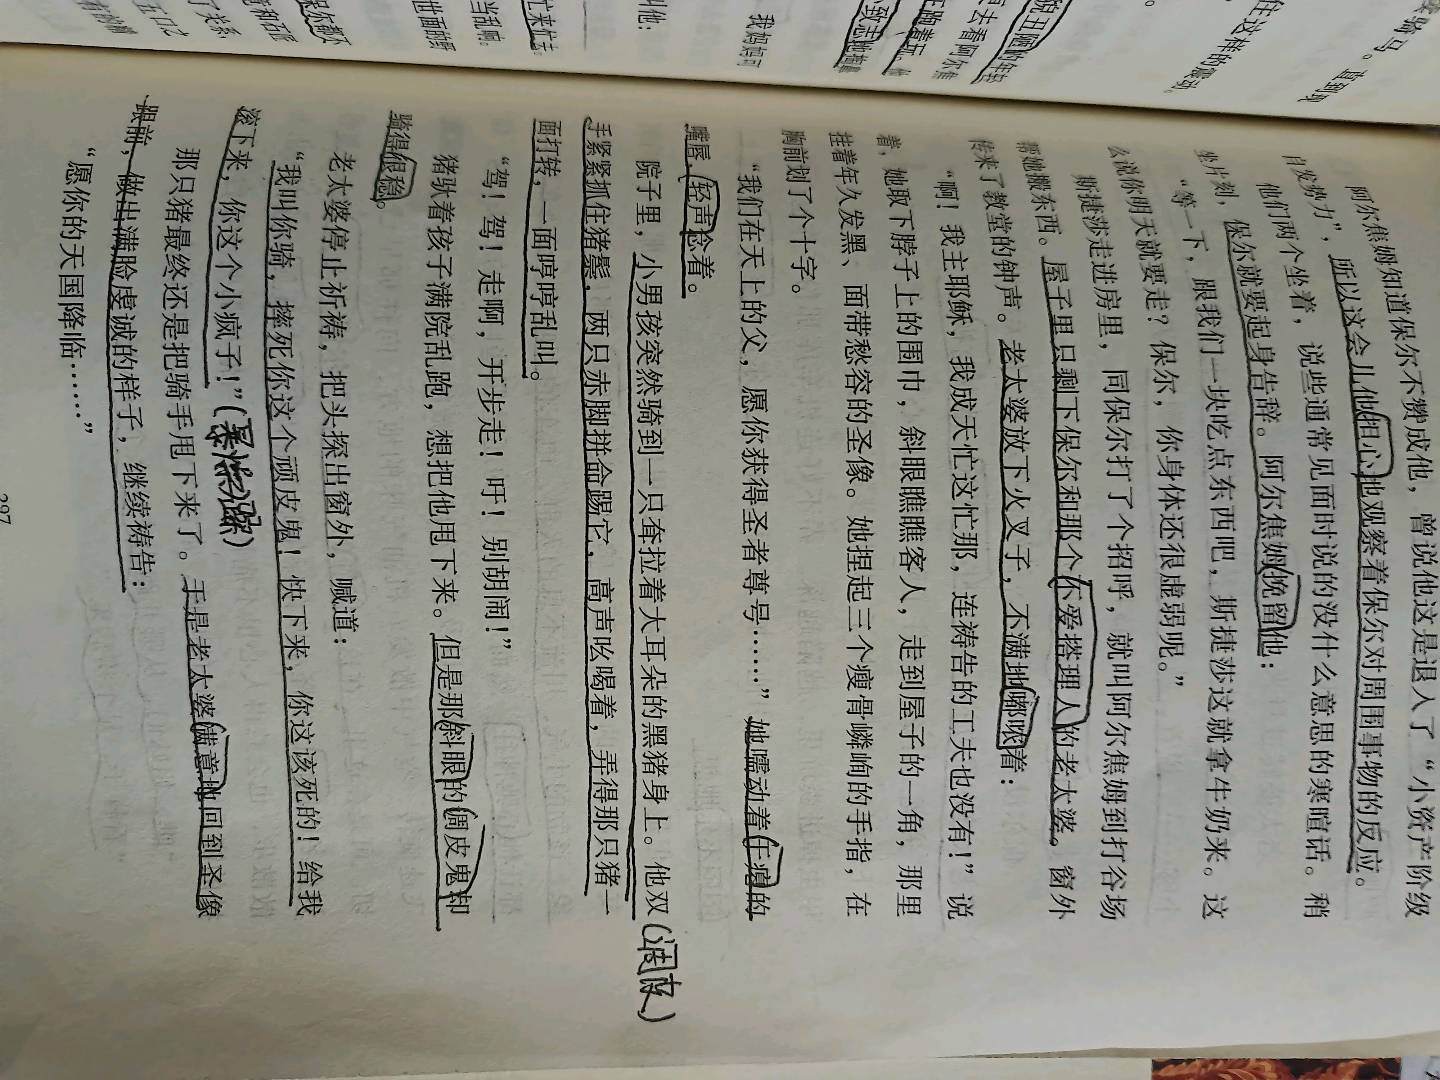 阿尔焦姆知道保尔不赞成他，曾说他这是退入了“小资产阶级
自发势力”，所以这会儿他担心地观察着保尔对周围事物的反应。
他们两个坐着，说些通常见面时说的没什么意思的寒暄话。稍
坐片刻，保尔就要起身告辞。阿尔焦姆挽留他：
“等一下，跟我们一块吃点东西吧，斯捷莎这就拿牛奶来。这
么说你明天就要走？保尔，你身体还很虚弱呢。”
斯捷莎走进房里，同保尔打了个招呼，就叫阿尔焦姆到打谷场
帮她搬东西。屋子里只剩下保尔和那个不爱搭理人的老太婆。窗外
传来了教堂的钟声。老太婆放下火叉子，不满地嘟哝着：
“啊！我主耶稣，我成天忙这忙那，连祷告的工夫也没有！”说
着，她取下脖子上的围巾，斜眼瞧瞧客人，走到屋子的一角，那里
挂着年久发黑、面带愁容的圣像。她捏起三个瘦骨嶙峋的手指，在
胸前划了个十字。
“我们在天上的父，愿你获得圣者尊号……”她嚅动着干瘪的
嘴唇，轻声念着。
院子里，小男孩突然骑到一只耷拉着大耳朵的黑猪身上。他双
(调皮)
手紧紧抓住猪鬃，两只赤脚拼命踢它，高声吆喝着，弄得那只猪一
面打转，一面哼哼乱叫。
“驾！驾！走啊，开步走！吁！别胡闹！”
猪驮着孩子满院乱跑，想把他甩下来。但是那斜眼的调皮鬼却
骑得很稳。
老太婆停止祈祷，把头探出窗外，喊道：
“我叫你骑，摔死你这个顽皮鬼！快下来，你这该死的！给我
滚下来，你这个小疯子！”(暴躁)
那只猪最终还是把骑手甩下来了。于是老太婆满意地回到圣像
跟前，做出满脸虔诚的样子，继续祷告：
“愿你的天国降临……”
297